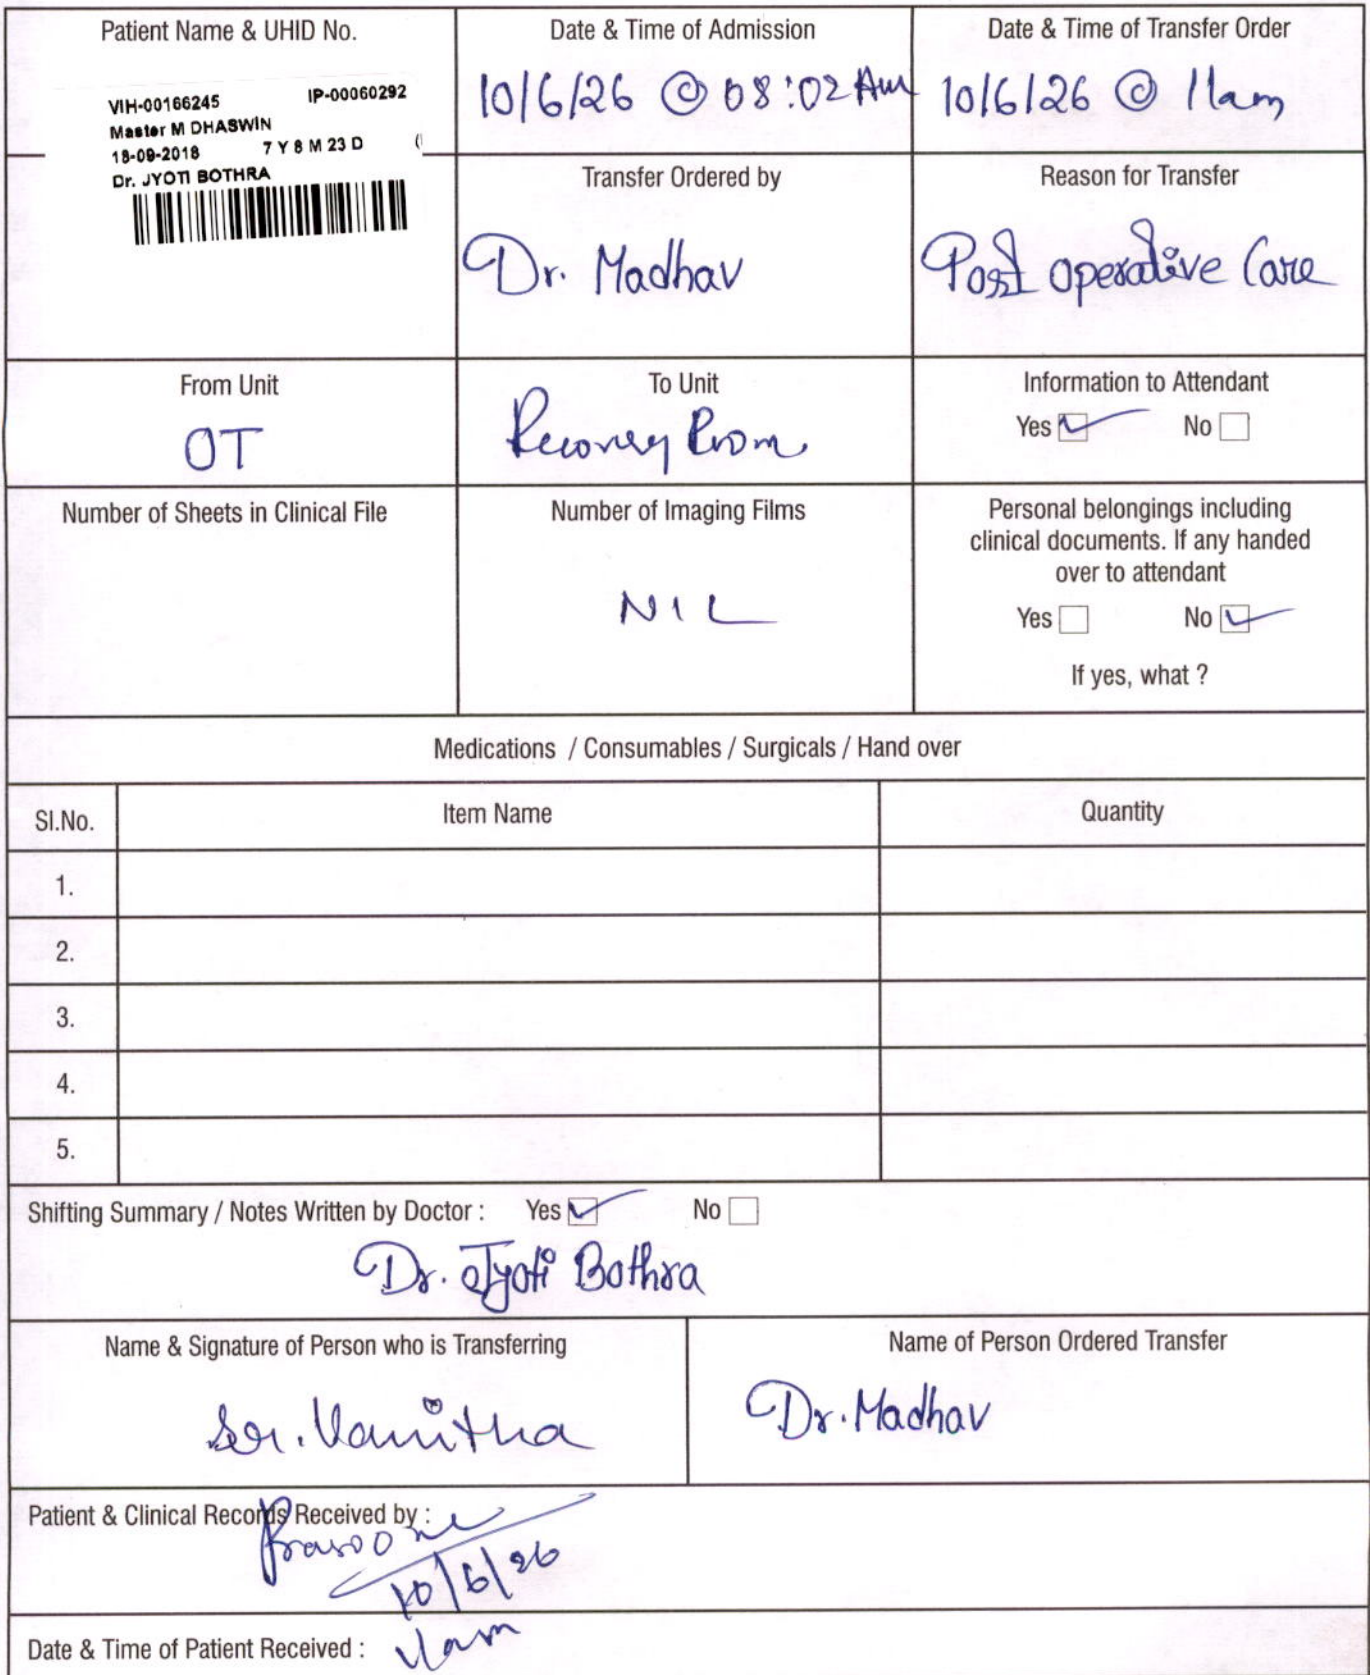 Patient Name & UHID No.
VIH-00166245 IP-00060292
Master M DHASWIN
18-09-2018 7 Y 8 M 23 D (
Dr. JYOTI BOTHRA
Date & Time of Admission
10/6/26 @ 08:02 Am
Date & Time of Transfer Order
10/6/26 @ 11am
Transfer Ordered by
Dr. Madhav
Reason for Transfer
Post operative Care
From Unit
OT
To Unit
Recovery Room
Information to Attendant
Yes ✓ No
Number of Sheets in Clinical File
Number of Imaging Films
NIL
Personal belongings including
clinical documents. If any handed
over to attendant
Yes No ✓
If yes, what ?
Medications / Consumables / Surgicals / Hand over
Sl.No. Item Name Quantity
1.
2.
3.
4.
5.
Shifting Summary / Notes Written by Doctor : Yes ✓ No
Dr. Jyoti Bothra
Name & Signature of Person who is Transferring
Sr. Vanitha
Name of Person Ordered Transfer
Dr. Madhav
Patient & Clinical Records Received by :
10/6/26
Date & Time of Patient Received : 11am